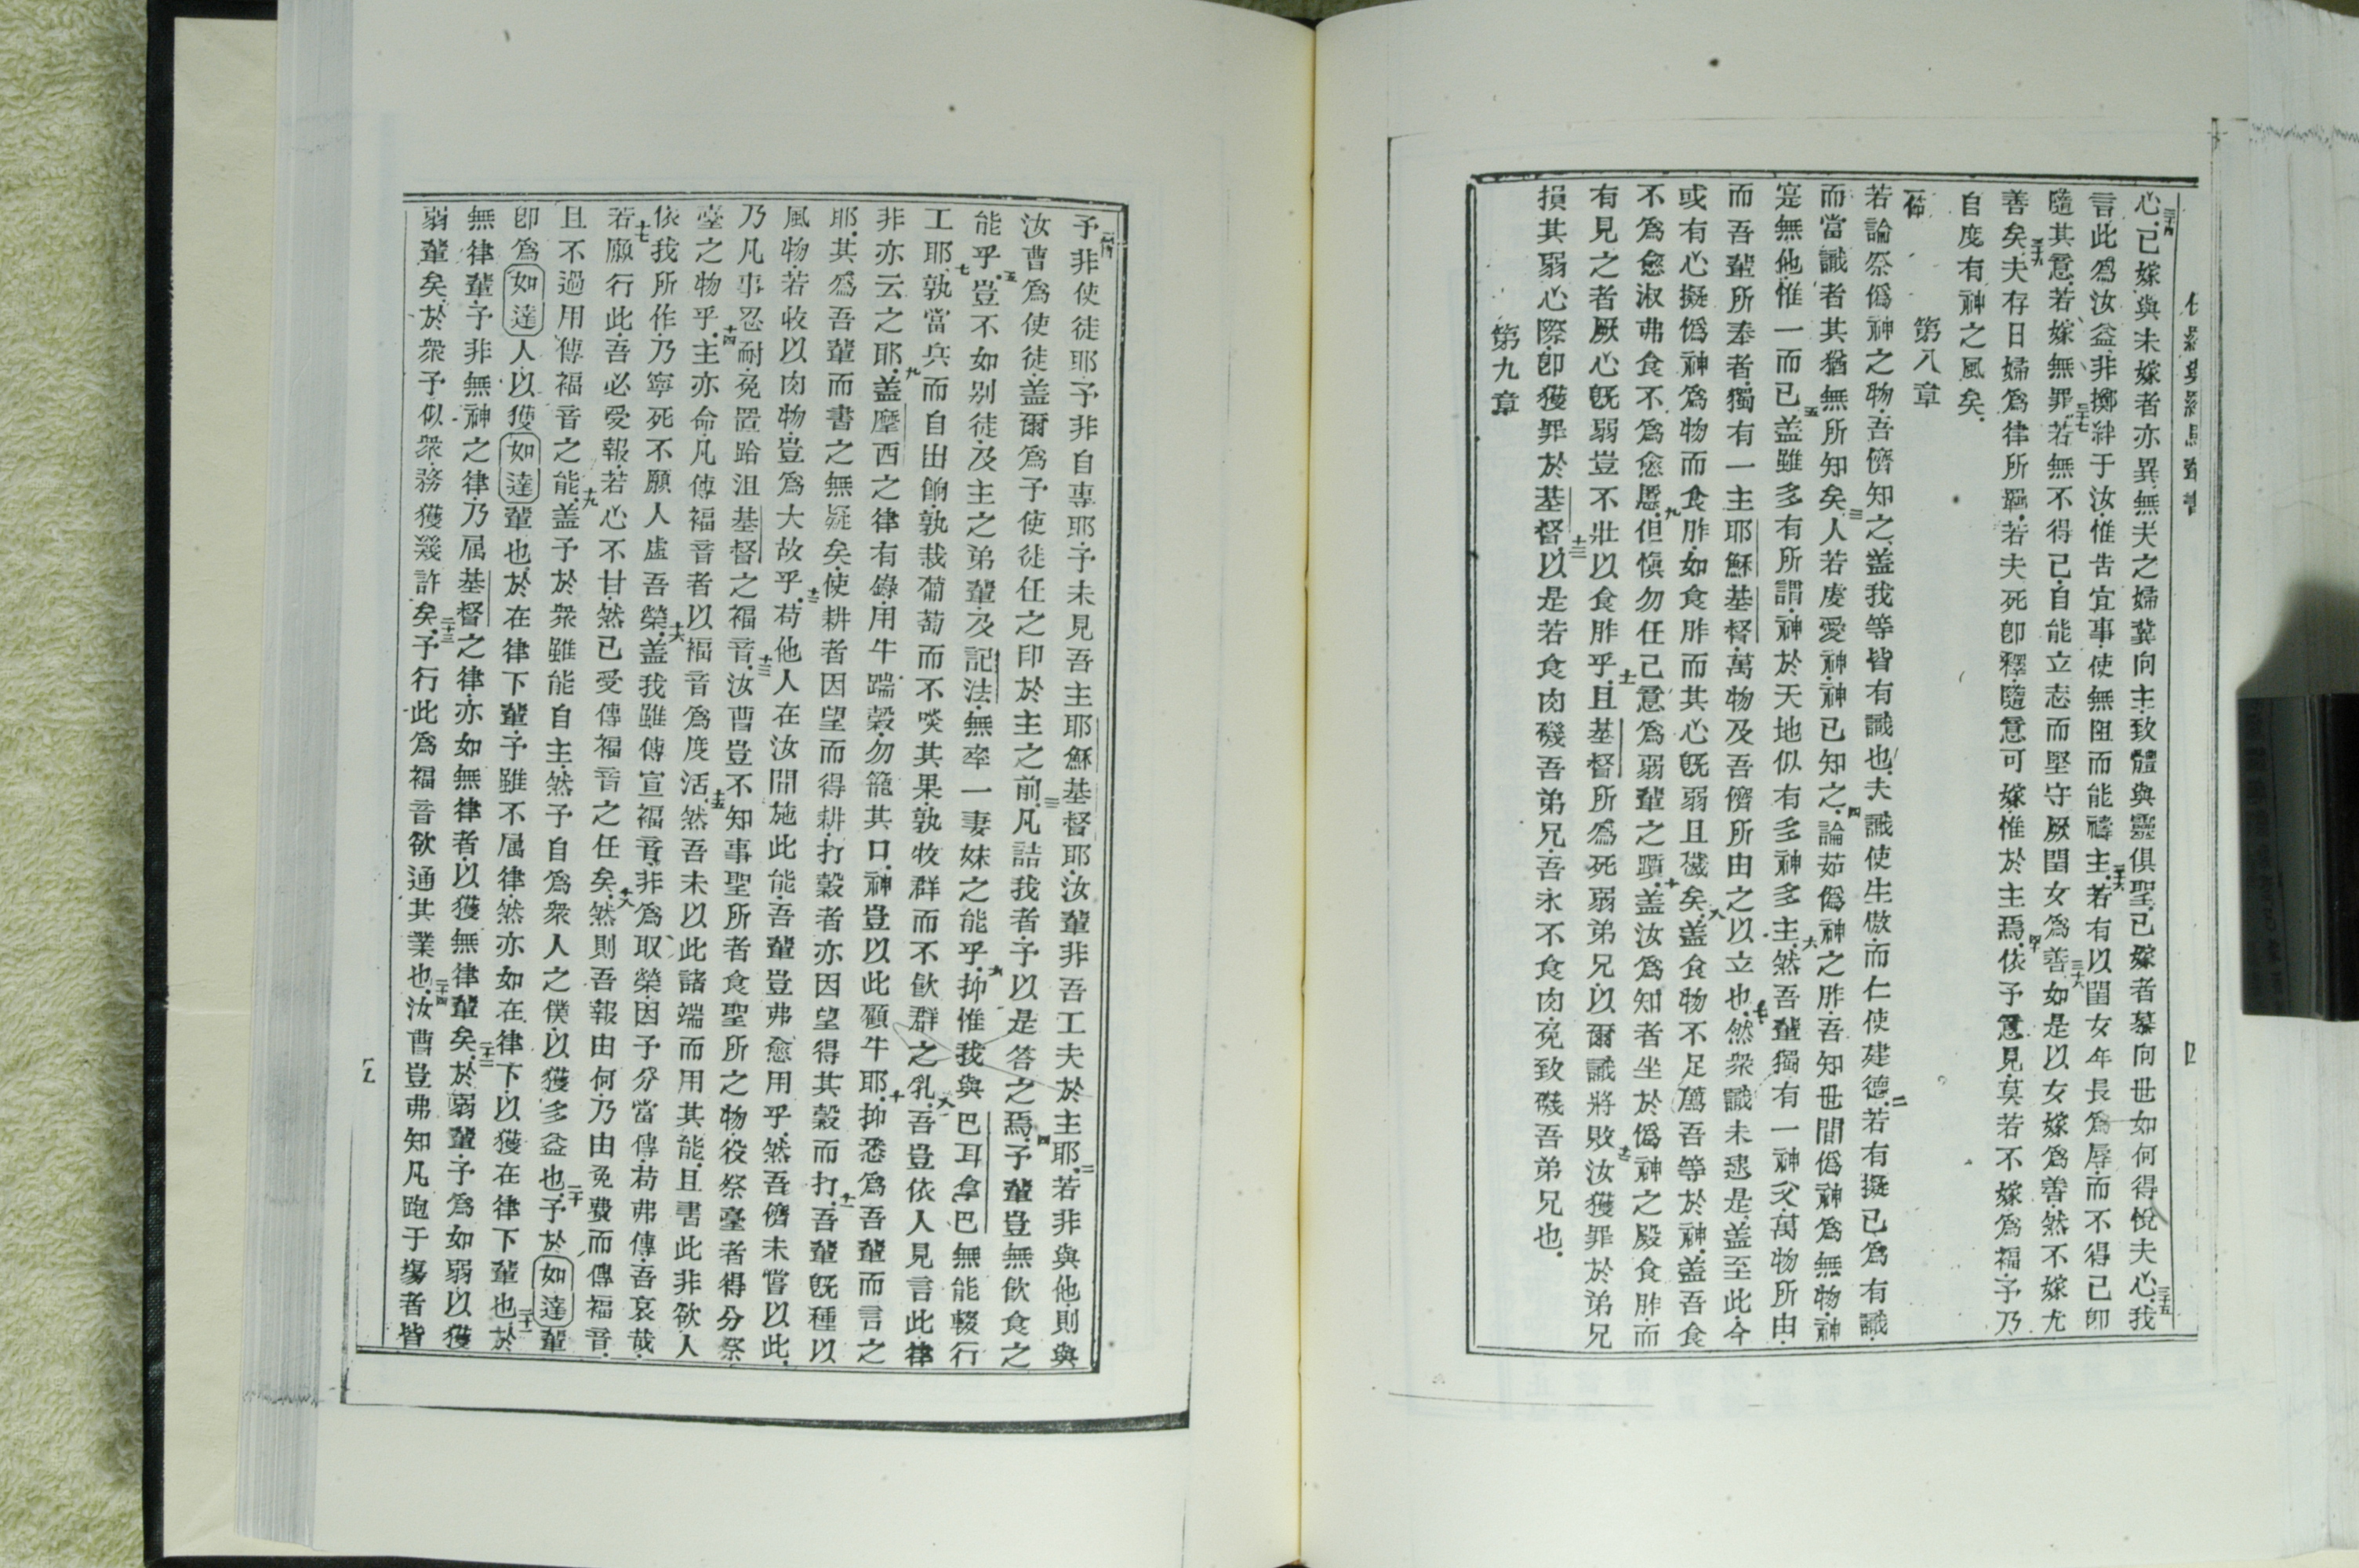 心。已嫁與未嫁者亦異。無夫之婦冀向主。致體與靈俱聖。已嫁者慕向世如何得悅夫心。三十五我
言此爲汝益。非擲絆于汝。惟告宜事。使無阻而能禱主。三十六若有以閨女年長爲辱。而不得已卽
隨其意。若嫁無罪。三十七若無不得已。自能立志而堅守厥閨女爲善。三十八如是以女嫁爲善。然不嫁尤
善矣。三十九夫存日婦爲律所羈。若夫死卽釋。隨意可嫁。惟於主焉。四十依予意見。莫若不嫁爲福。予乃
自度有神之風矣。
第八章
若論祭僞神之物。吾儕知之。盖我等皆有識也。夫識使生傲。而仁使建德。二若有擬已爲有識。
而當識者其猶無所知矣。三人若虔愛神。神已知之。四論茹僞神之胙。吾知世間僞神爲無物。神
寔無他。惟一而已。五盖雖多有所謂神。於天地似有多神多主。六然吾輩獨有一神父。萬物所由。
而吾輩所奉者。獨有一主耶穌基督。萬物及吾儕所由之以立也。七然衆識未逮是。盖至此今
或有心擬僞神爲物而食胙。如食胙而其心旣弱且穢矣。八盖食物不足薦吾等於神。盖吾食
不爲愈淑。弗食不爲愈慝。九但愼勿任己意爲弱輩之躓。十盖汝爲知者坐於僞神之殿食胙。而
有見之者厥心旣弱豈不壯以食胙乎。十一且基督所爲死弱弟兄。以爾識將敗。十二汝獲罪於弟兄
損其弱心際卽獲罪於基督。十三以是若食肉礙吾弟兄。吾永不食肉。免致礙吾弟兄也。
第九章
四
予非使徒耶。予非自專耶。予未見吾主耶穌基督耶。汝輩非吾工夫於主耶。二若非與他。則與
汝曹爲使徒。盖爾爲予使徒任之印於主之前。三凡詰我者。予以是答之焉。四予輩豈無飲食之
能乎。五豈不如别徒。及主之弟輩。及記法。無牽一妻妹之能乎。六抑惟我與巴耳拿巴無能輟行
工耶。七孰當兵而自出餉。孰栽葡萄而不啖其果。孰牧群而不飮群之乳。八吾豈依人見言此。律
非亦云之耶。九盖摩西之律有錄。用牛踹穀。勿籠其口。神豈以此顧牛耶。十抑悉爲吾輩而言之
耶。其爲吾輩而書之無疑矣。使耕者因望而得耕。打穀者亦因望得其穀而打。十一吾輩旣種以
風物。若收以肉物。豈爲大故乎。十二苟他人在汝間施此能。吾輩豈弗愈用乎。然吾儕未嘗以此。
乃凡事忍耐。免置跲沮基督之福音。十三汝曹豈不知事聖所者食聖所之物。役祭臺者得分祭
臺之物乎。十四主亦命凡傳福音者以福音爲度活。十五然吾未以此諸端而用其能。且書此非欲人
依我所作。乃寧死不願人虛吾榮。十六盖我雖傳宣福音。非爲取榮。因予分當傳。苟弗傳。吾哀哉。
十七若願行此。吾必愛報。若心不甘。然已受傳福音之任矣。十八然則吾報由何。乃由免費而傳福音。
且不過用傳福音之能。十九盖予於衆雖能自主。然予自爲衆人之僕。以獲多益也。二十予於如達輩
卽爲如達人。以獲如達輩也。於在律下輩。予雖不屬律。然亦如在律下。以獲在律下輩也。二十一於
無律輩。予非無神之律。乃屬基督之律。亦如無律者。以獲無律輩矣。二十二於弱輩。予爲如弱以獲
弱輩矣。於衆予似衆。務獲幾許矣。二十三予行此爲福音欲通其業也。二十四汝曹豈弗知凡跑于場者皆
五